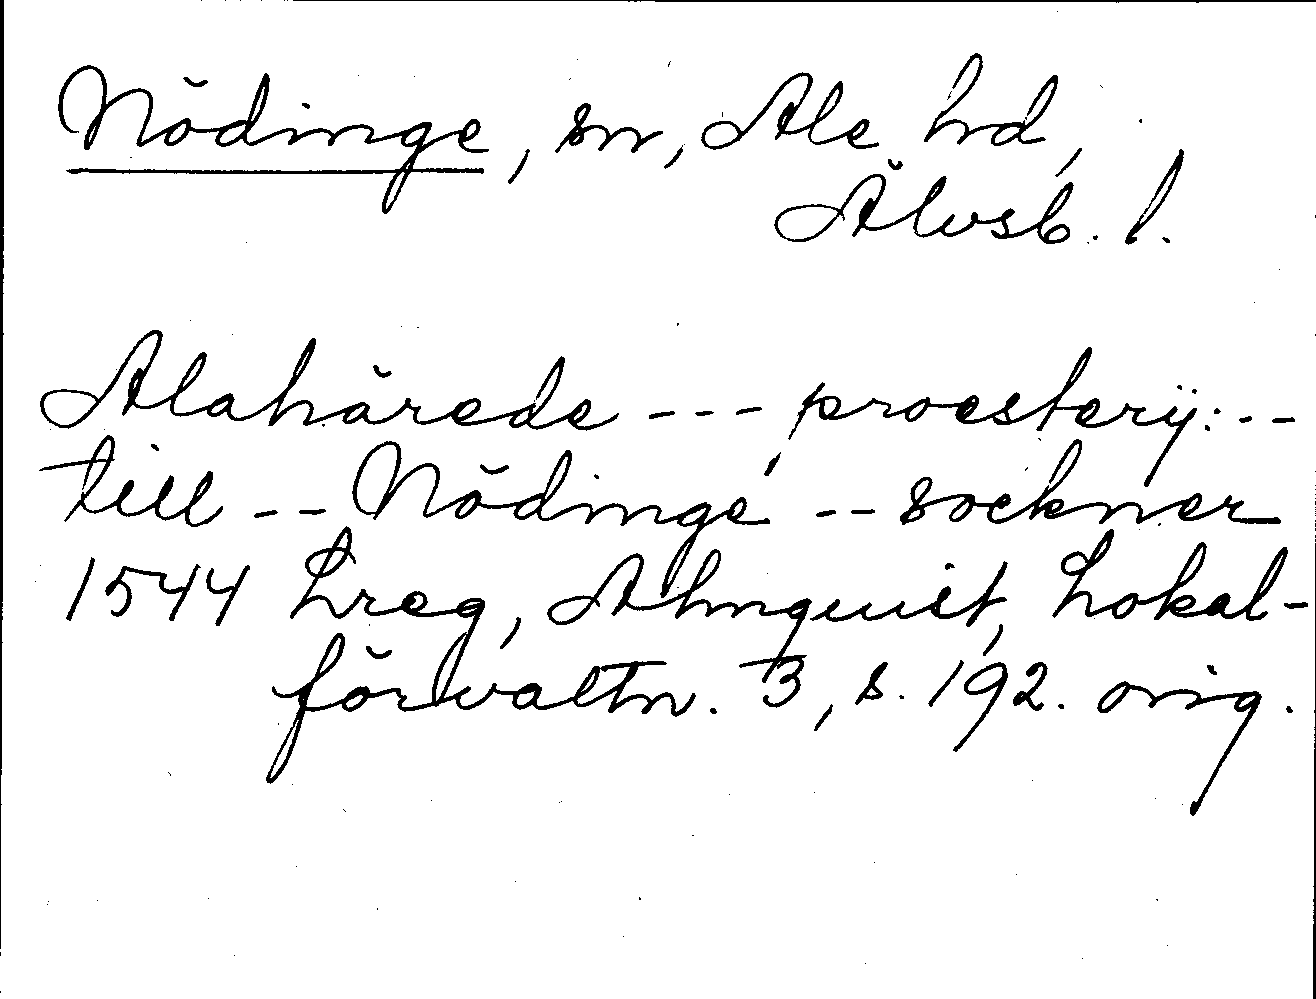 Nödinge, sn, Ale hd,
Älvsb. l.
Alahärede --- proesterij: --
till -- Nödinge -- sockner
1544 Lreg, Almquist, Lokal-
förvaltn. 3, s. 192. orig.